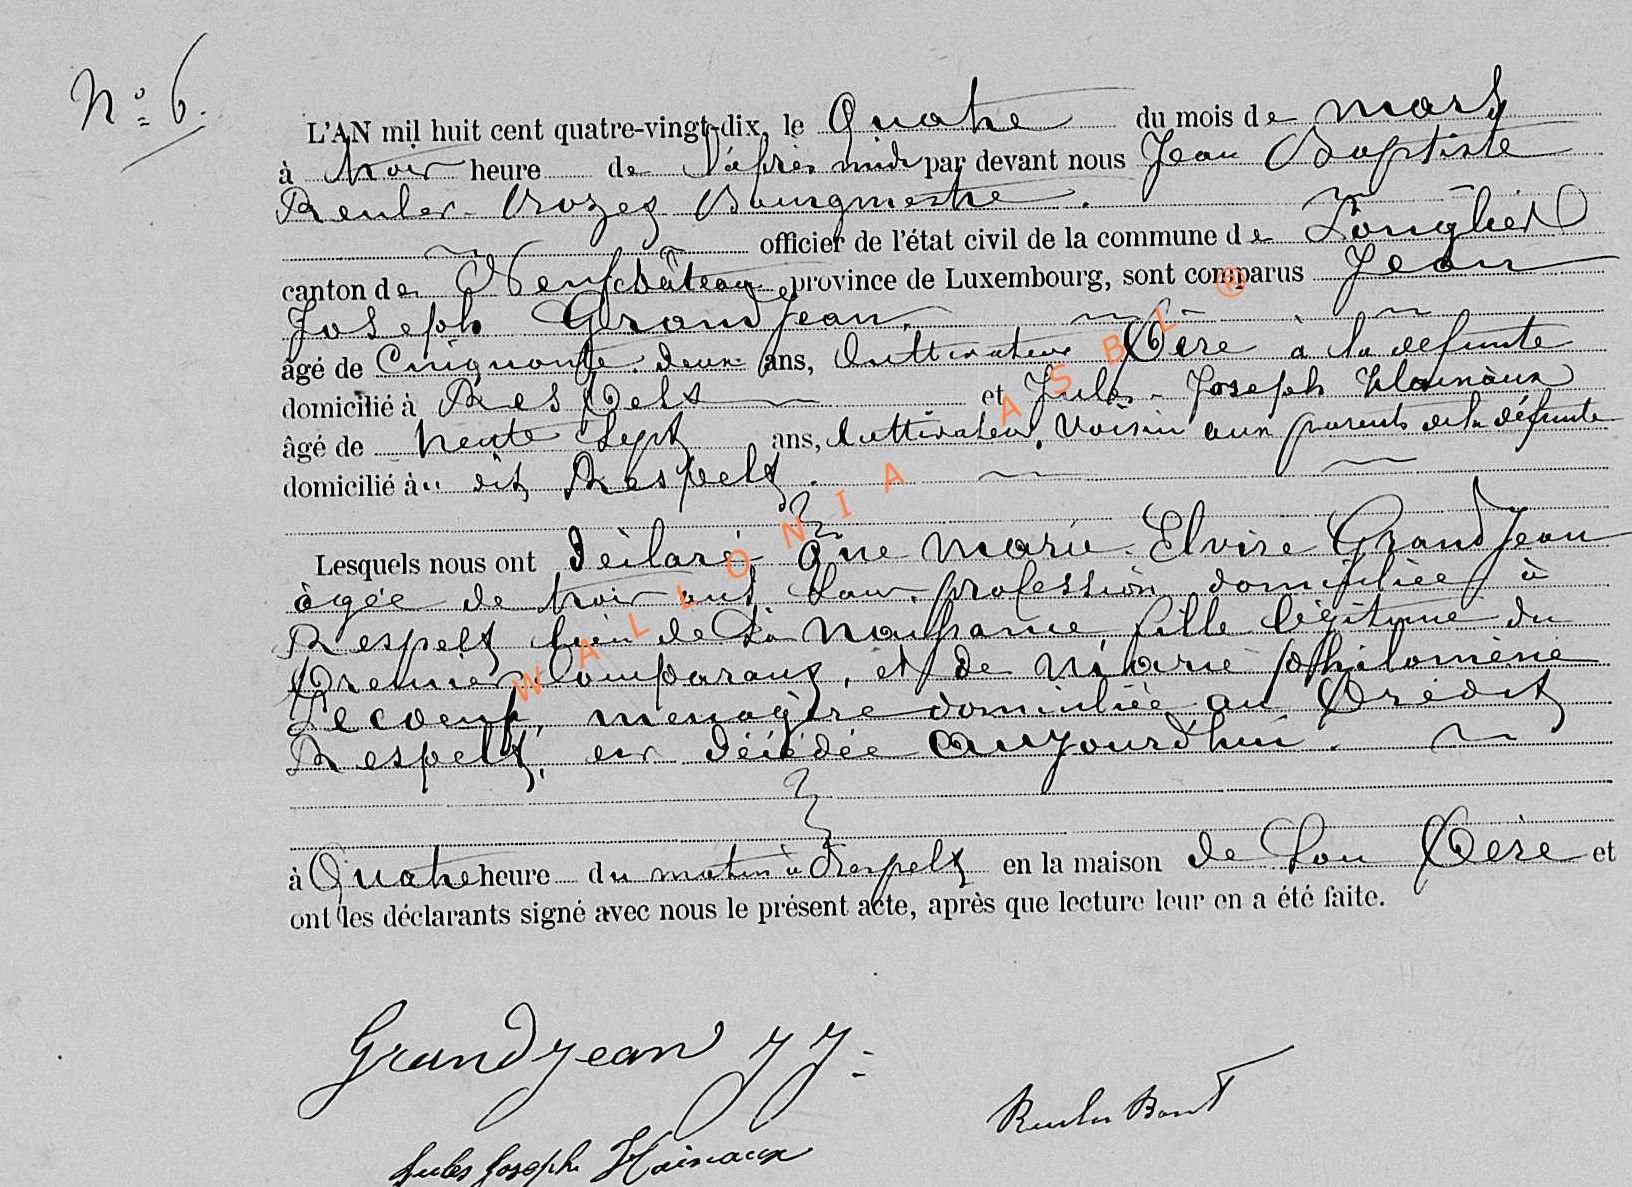 N° 6.
L'AN mil huit cent quatre-vingt-dix, le Quatre du mois de mars
à trois heure de l'après midi par devant nous Jean Baptiste
Reuler Bourgmestre.
officier de l'état civil de la commune de Longlier
canton de Neufchâteau province de Luxembourg, sont comparus Jean
Joseph Grandjean.
âgé de Cinquante deux ans, Cultivateur Père à la défunte
domicilié à Respelt et Jules Joseph Hainaux
âgé de trente sept ans, Cultivateur, Voisin aux parents de la défunte
domicilié à dit Respelt.
Lesquels nous ont déclaré Que Marie Elvire Grandjean
âgée de trois ans sans profession domiciliée à
Respelt lieu de sa Naissance, fille légitime du
Premier Comparant, et de Marie Philomène
Lecoeur, ménagère domiciliée au Prédit
Respelt, est décédée aujourd'hui.
à Quatre heure du matin à Respelt en la maison de Son Père et
ont les déclarants signé avec nous le présent acte, après que lecture leur en a été faite.
Grandjean J J.
Jules Joseph Hainaux
Reuler Bapt
WALLONIA ASBL ®